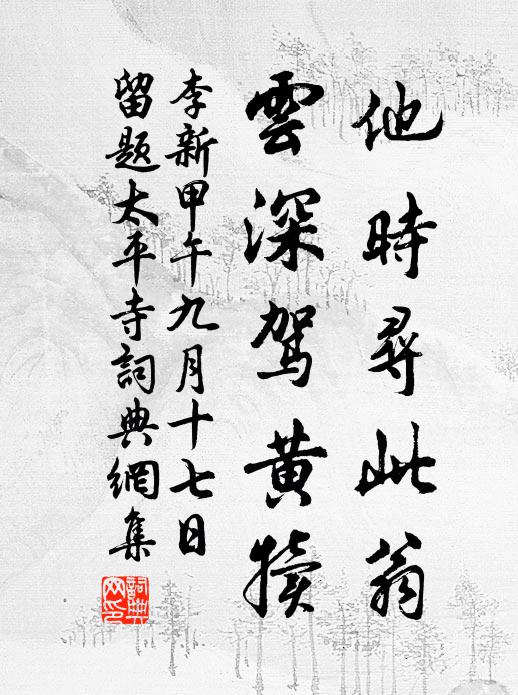 他時尋此翁
雲深駕黃犢
李新甲午九月十七日
留題太平寺詞典網集